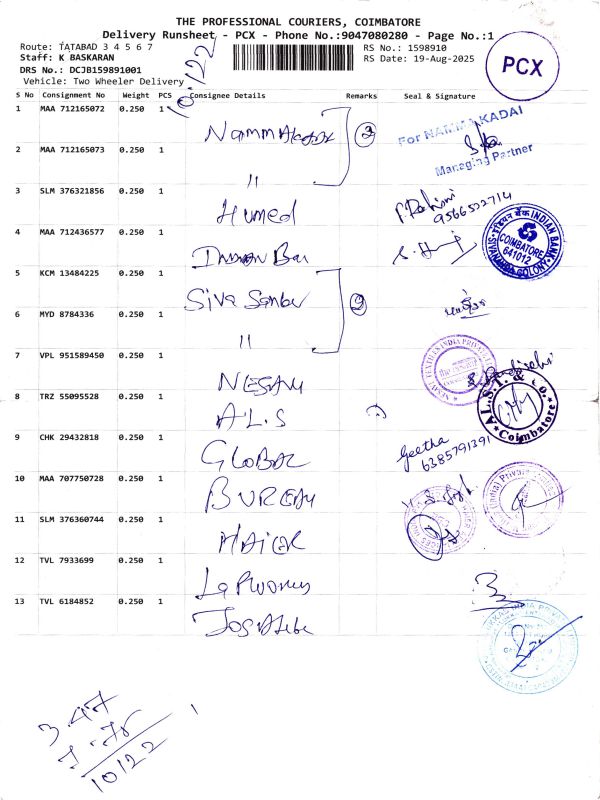 THE PROFESSIONAL COURIERS, COIMBATORE
Delivery Runsheet - PCX - Phone No.:9047080280 - Page No.:1
Route: TATABAD 3 4 5 6 7
RS No.: 1598910
Staff: K BASKARAN
RS Date: 19-Aug-2025
DRS No.: DCJB159891001
Vehicle: Two Wheeler Delivery
PCX
10:122
S No Consignment No Weight PCS Consignee Details Remarks Seal & Signature
1 MAA 712165072 0.250 1
For NAMMAKADAI
2 MAA 712165073 0.250 1 " 2
Managing Partner
3 SLM 376321856 0.250 1 Humed
9566522714
4 MAA 712436577 0.250 1 Indian Ban
INDIAN BANK
COIMBATORE
641012
5 KCM 13484225 0.250 1 Siva Sanbu
6 MYD 8784336 0.250 1 "
7 VPL 951589450 0.250 1 NESAM
8 TRZ 55095528 0.250 1 A.L.S
Coimbatore
9 CHK 29432818 0.250 1 GLOBAL
Geetha
6385791391
10 MAA 707750728 0.250 1 BUREAU
11 SLM 376360744 0.250 1
12 TVL 7933699 0.250 1
13 TVL 6184852 0.250 1
3.47
10122